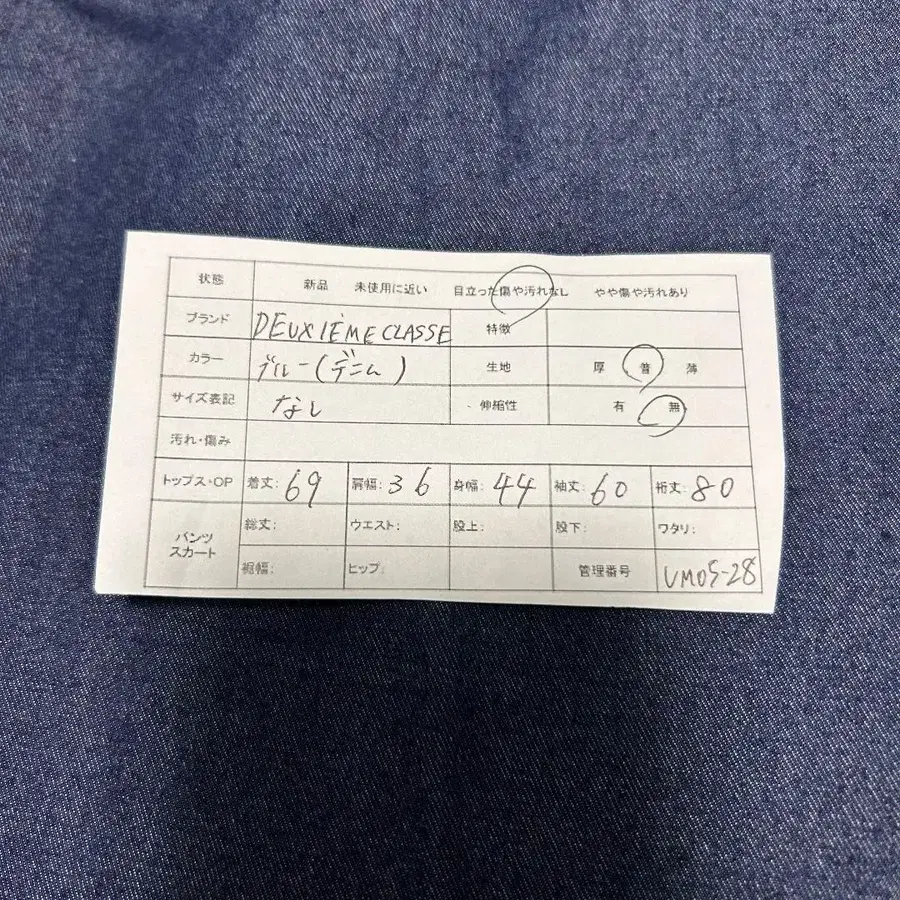 状態 新品 未使用に近い 目立った傷や汚れなし やや傷や汚れあり
ブランド DEUXIÈME CLASSE 特徴
カラー ブルー(デニム) 生地 厚 普 薄
サイズ表記 なし 伸縮性 有 無
汚れ・傷み
トップス・OP 着丈: 69 肩幅: 36 身幅: 44 袖丈: 60 裄丈: 80
パンツ スカート 総丈: ウエスト: 股上: 股下: ワタリ:
裾幅: ヒップ: 管理番号 UM05-28